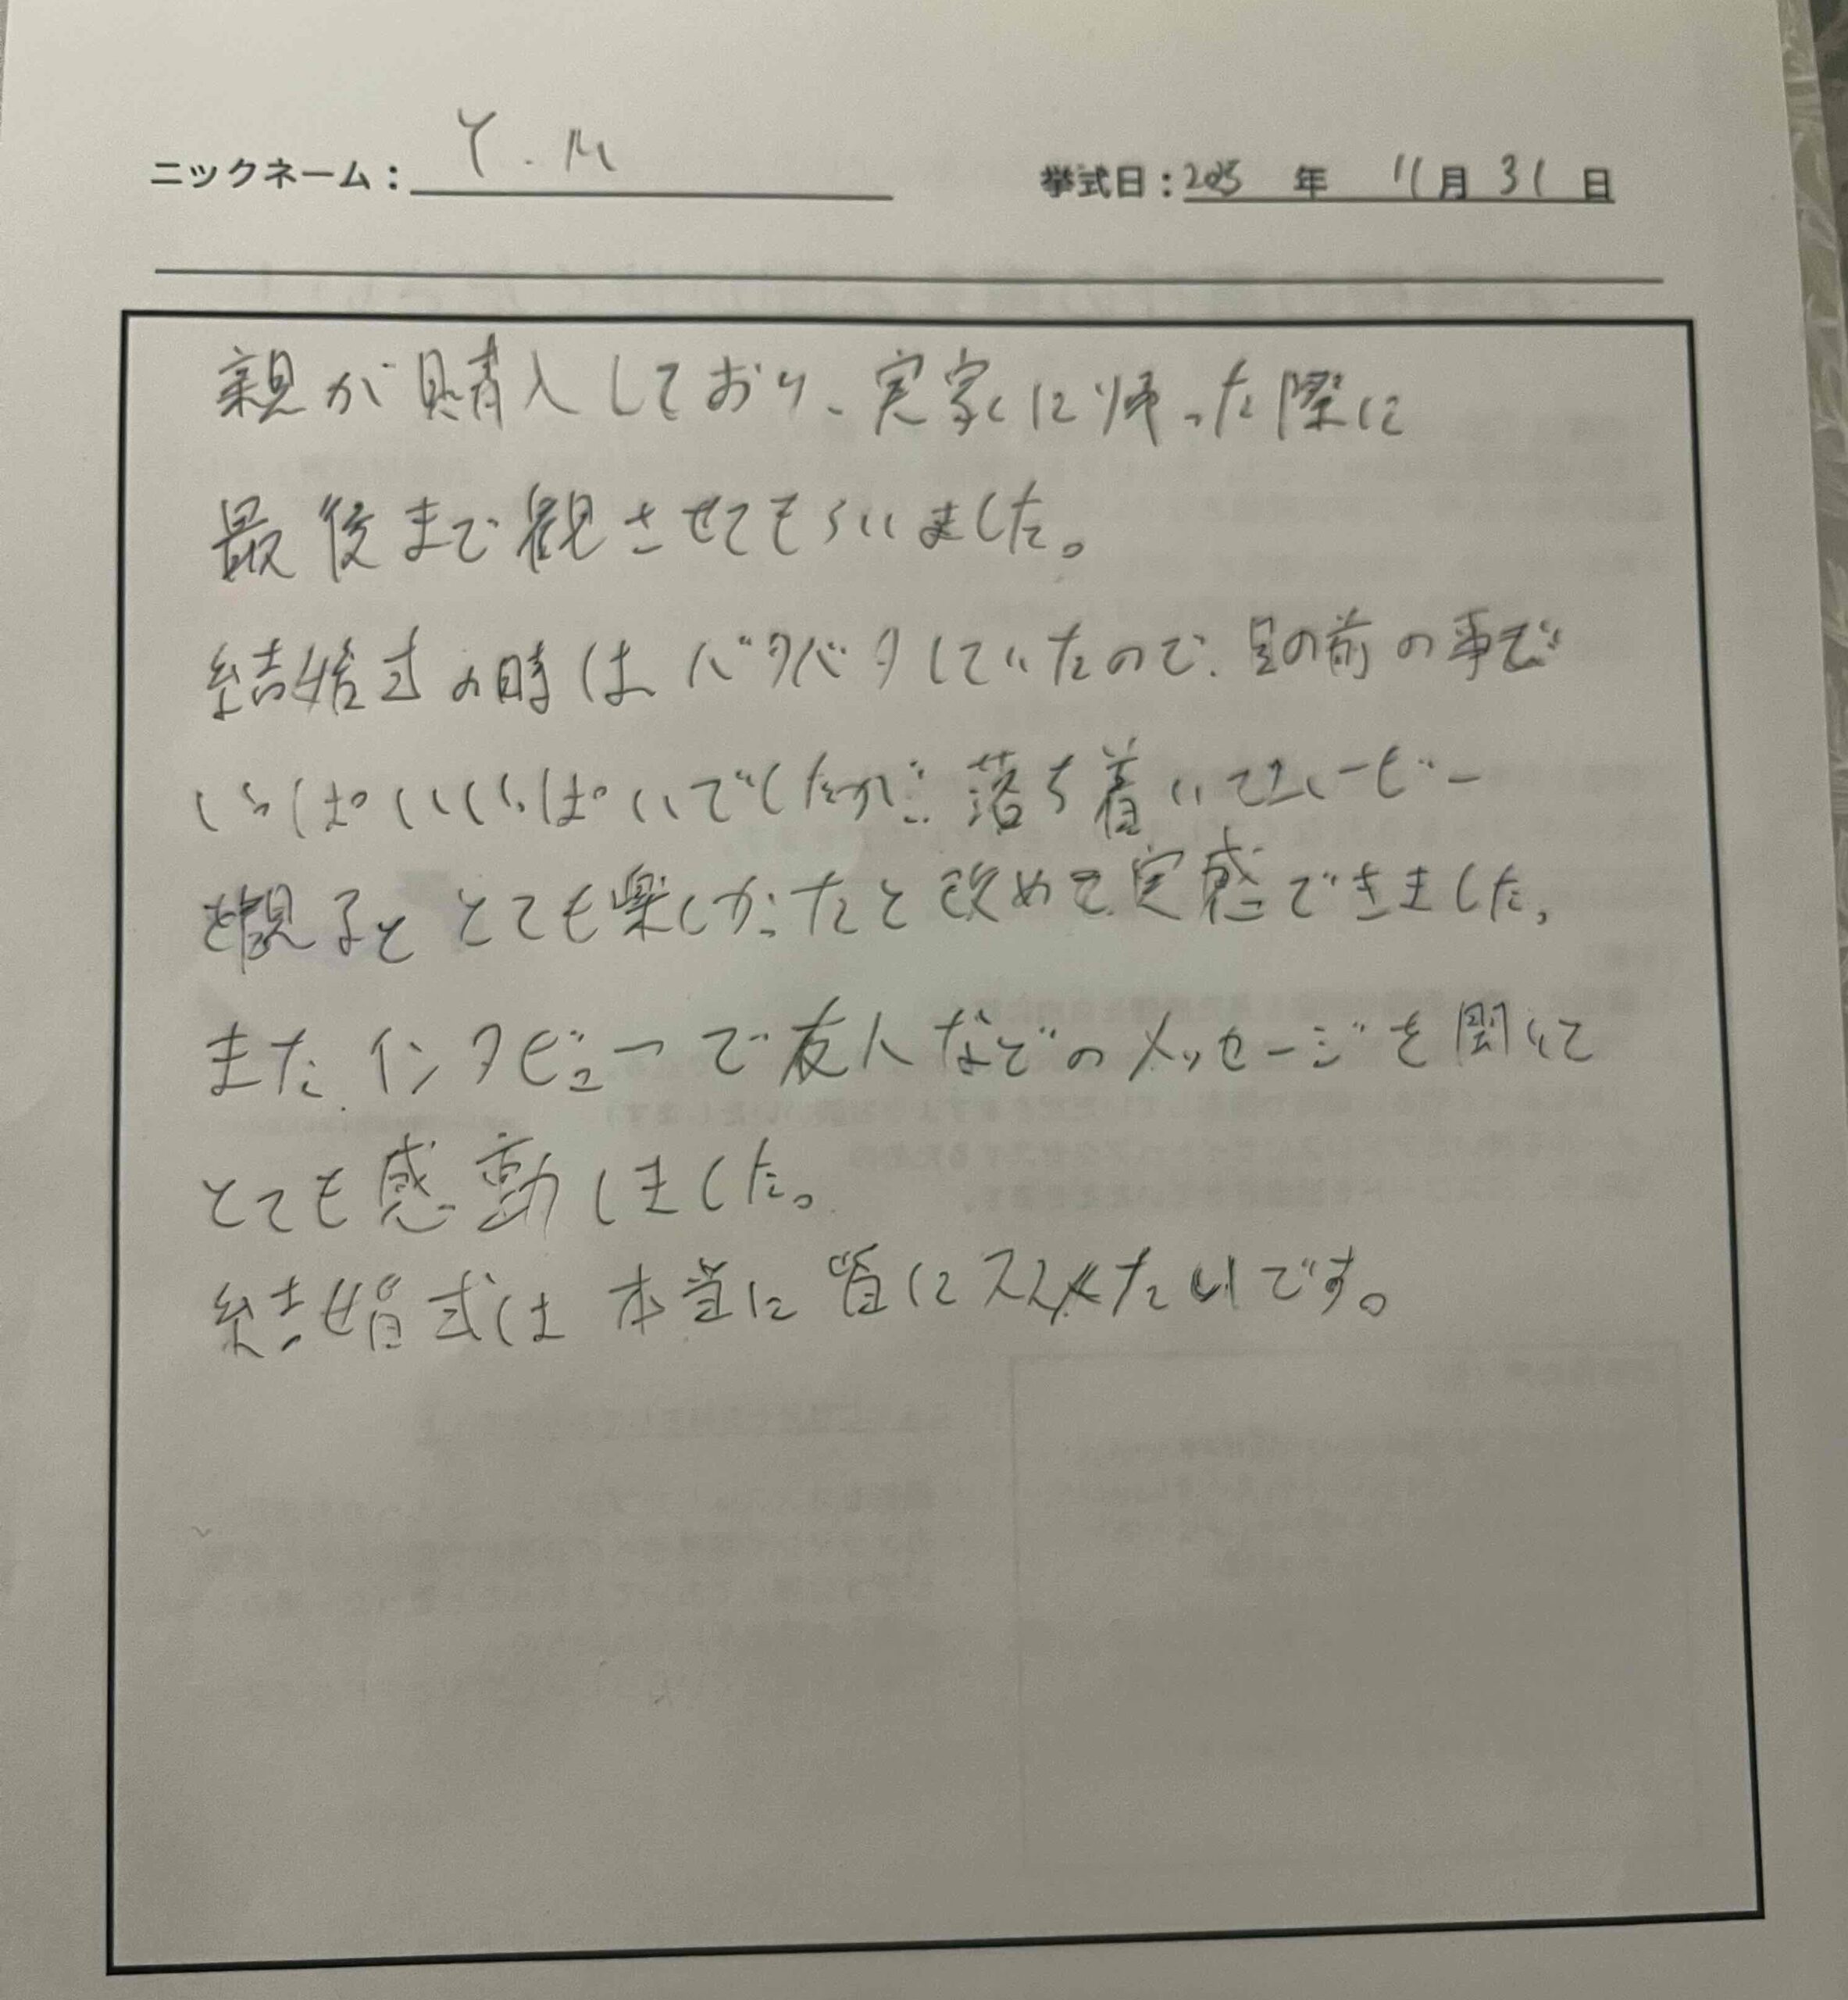 ニックネーム： Y.M 挙式日：2025 年 11月 31 日
親が購入しており、実家に帰った際に
最後まで観させてもらいました。
結婚式の時はバタバタしていたので、目の前の事で
いっぱいいっぱいでしたが、落ち着いてムービー
を観ると とても楽しかったと改めて実感できました。
また、インタビューで友人などのメッセージを聞いて
とても感動しました。
結婚式は本当に皆にススメたいです。